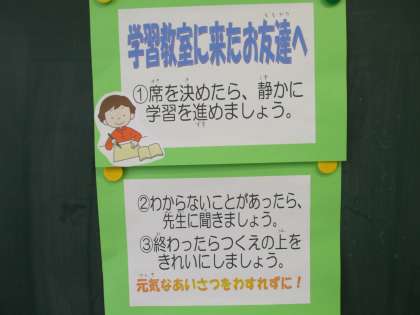 学習教室に来たお友達へ
①席を決めたら、静かに
学習を進めましょう。
②わからないことがあったら、
先生に聞きましょう。
③終わったらつくえの上を
きれいにしましょう。
元気なあいさつをわすれずに！